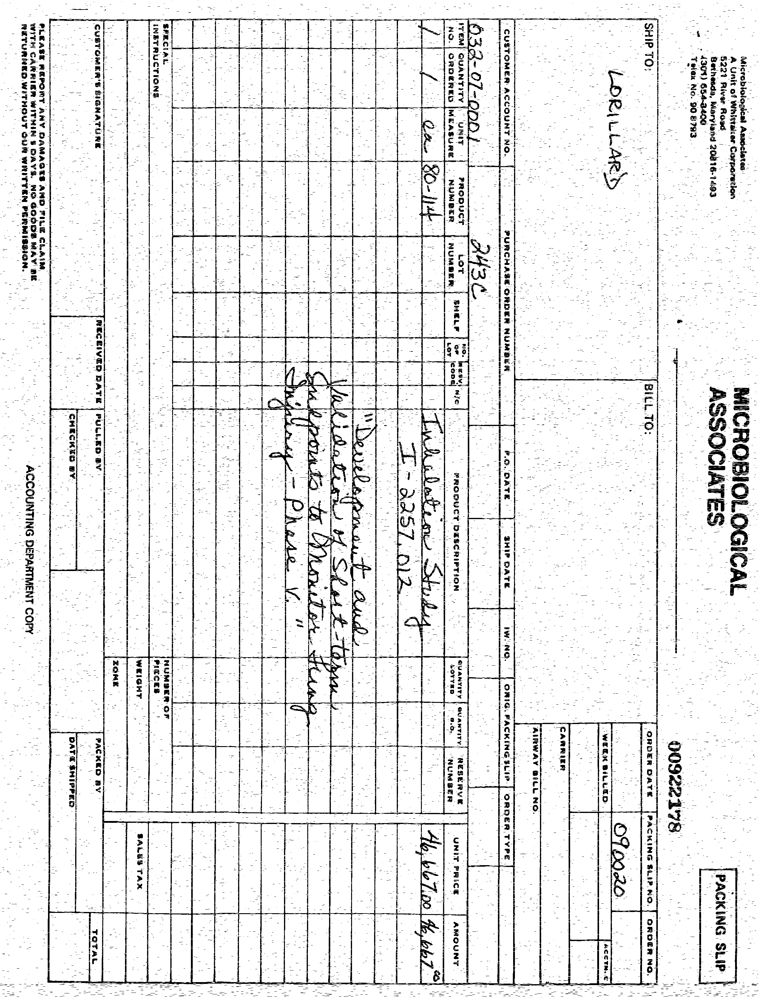 Microbiological Associates
A Unit of Whittaker Corporation
5221 River Road
Bethesda, Maryland 20816-1493
(301) 654-3400
Telex No. 90 8793
MICROBIOLOGICAL
ASSOCIATES
00922178
PACKING SLIP
SHIP TO:
LORILLARD
BILL TO:
ORDER DATE PACKING SLIP NO. ORDER NO.
090020
WEEK BILLED ACCTN-C
CARRIER
AIRWAY BILL NO.
CUSTOMER ACCOUNT NO. PURCHASE ORDER NUMBER P.O. DATE SHIP DATE IW. NO. ORIG. PACKING SLIP ORDER TYPE
032-07-0001 243C
ITEM NO. QUANTITY ORDERED UNIT MEASURE PRODUCT NUMBER LOT NUMBER SHELF NO. OF LOT RESV. CODE N/C PRODUCT DESCRIPTION QUANTITY LOTTED QUANTITY B.O. RESERVE NUMBER UNIT PRICE AMOUNT
1 1 ea 80-114 Inhalation Study 46,667.00 46,667 00
I-2257.012
"Development and
Validation of Short-term
Endpoints to Monitor Lung
Injury - Phase V."
SPECIAL INSTRUCTIONS
NUMBER OF PIECES
WEIGHT SALES TAX
ZONE
CUSTOMER'S SIGNATURE RECEIVED DATE PULLED BY PACKED BY TOTAL
CHECKED BY DATE SHIPPED
PLEASE REPORT ANY DAMAGES AND FILE CLAIM
WITH CARRIER WITHIN 5 DAYS. NO GOODS MAY BE
RETURNED WITHOUT OUR WRITTEN PERMISSION.
ACCOUNTING DEPARTMENT COPY